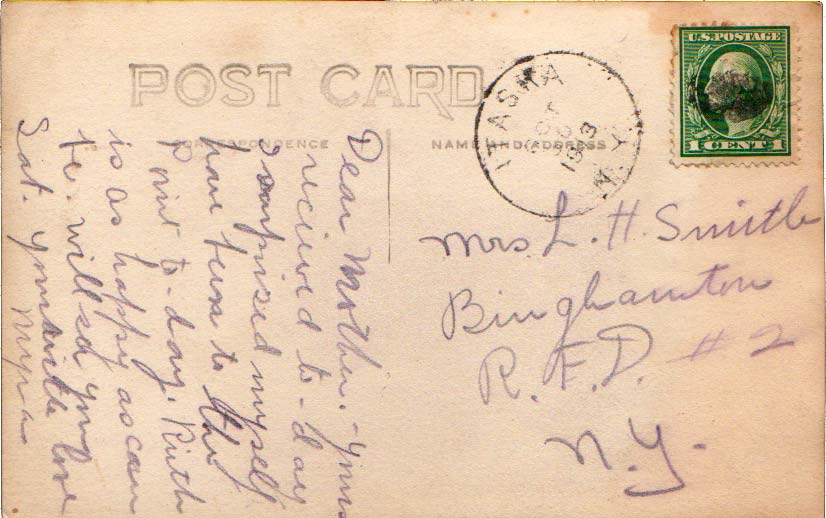 POST CARD
CORRESPONDENCE
NAME AND ADDRESS
ITASKA
OCT
1913
N.Y.
U.S. POSTAGE
1 CENT 1
Mrs. L. H. Smith
Binghamton
R. F. D. # 2
N. Y.
Dear Mother. - Yours
recieved to-day
I surprised myself
have been to the
Point to-day. Ruth
is as happy as can
be. will see you
Sat. Yours with love
Myra